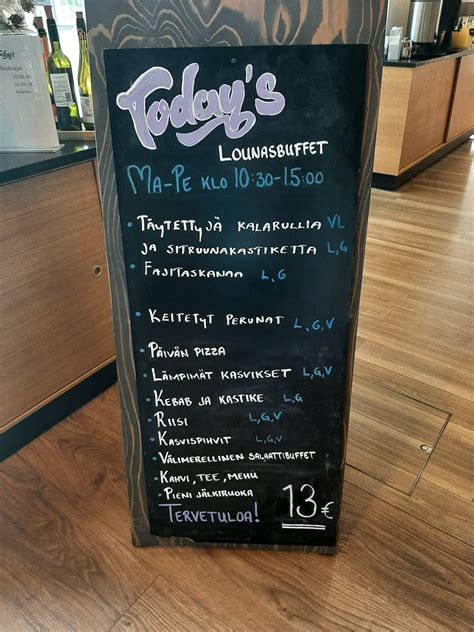 Today's
LOUNASBUFFET
MA-PE KLO 10:30-15:00
• TÄYTETTYJÄ KALARULLIA VL
JA SITRUUNAKASTIKETTA L,G
• FAJITASKANAA L,G
• KEITETYT PERUNAT L,G,V
• PÄIVÄN PIZZA
• LÄMPIMÄT KASVIKSET L,G,V
• KEBAB JA KASTIKE L,G
• RIISI L,G,V
• KASVISPIHVIT L,G,V
• VÄLIMERELLINEN SALAATTIBUFFET
• KAHVI, TEE, MEHU
• PIENI JÄLKIRUOKA
TERVETULOA!
13€